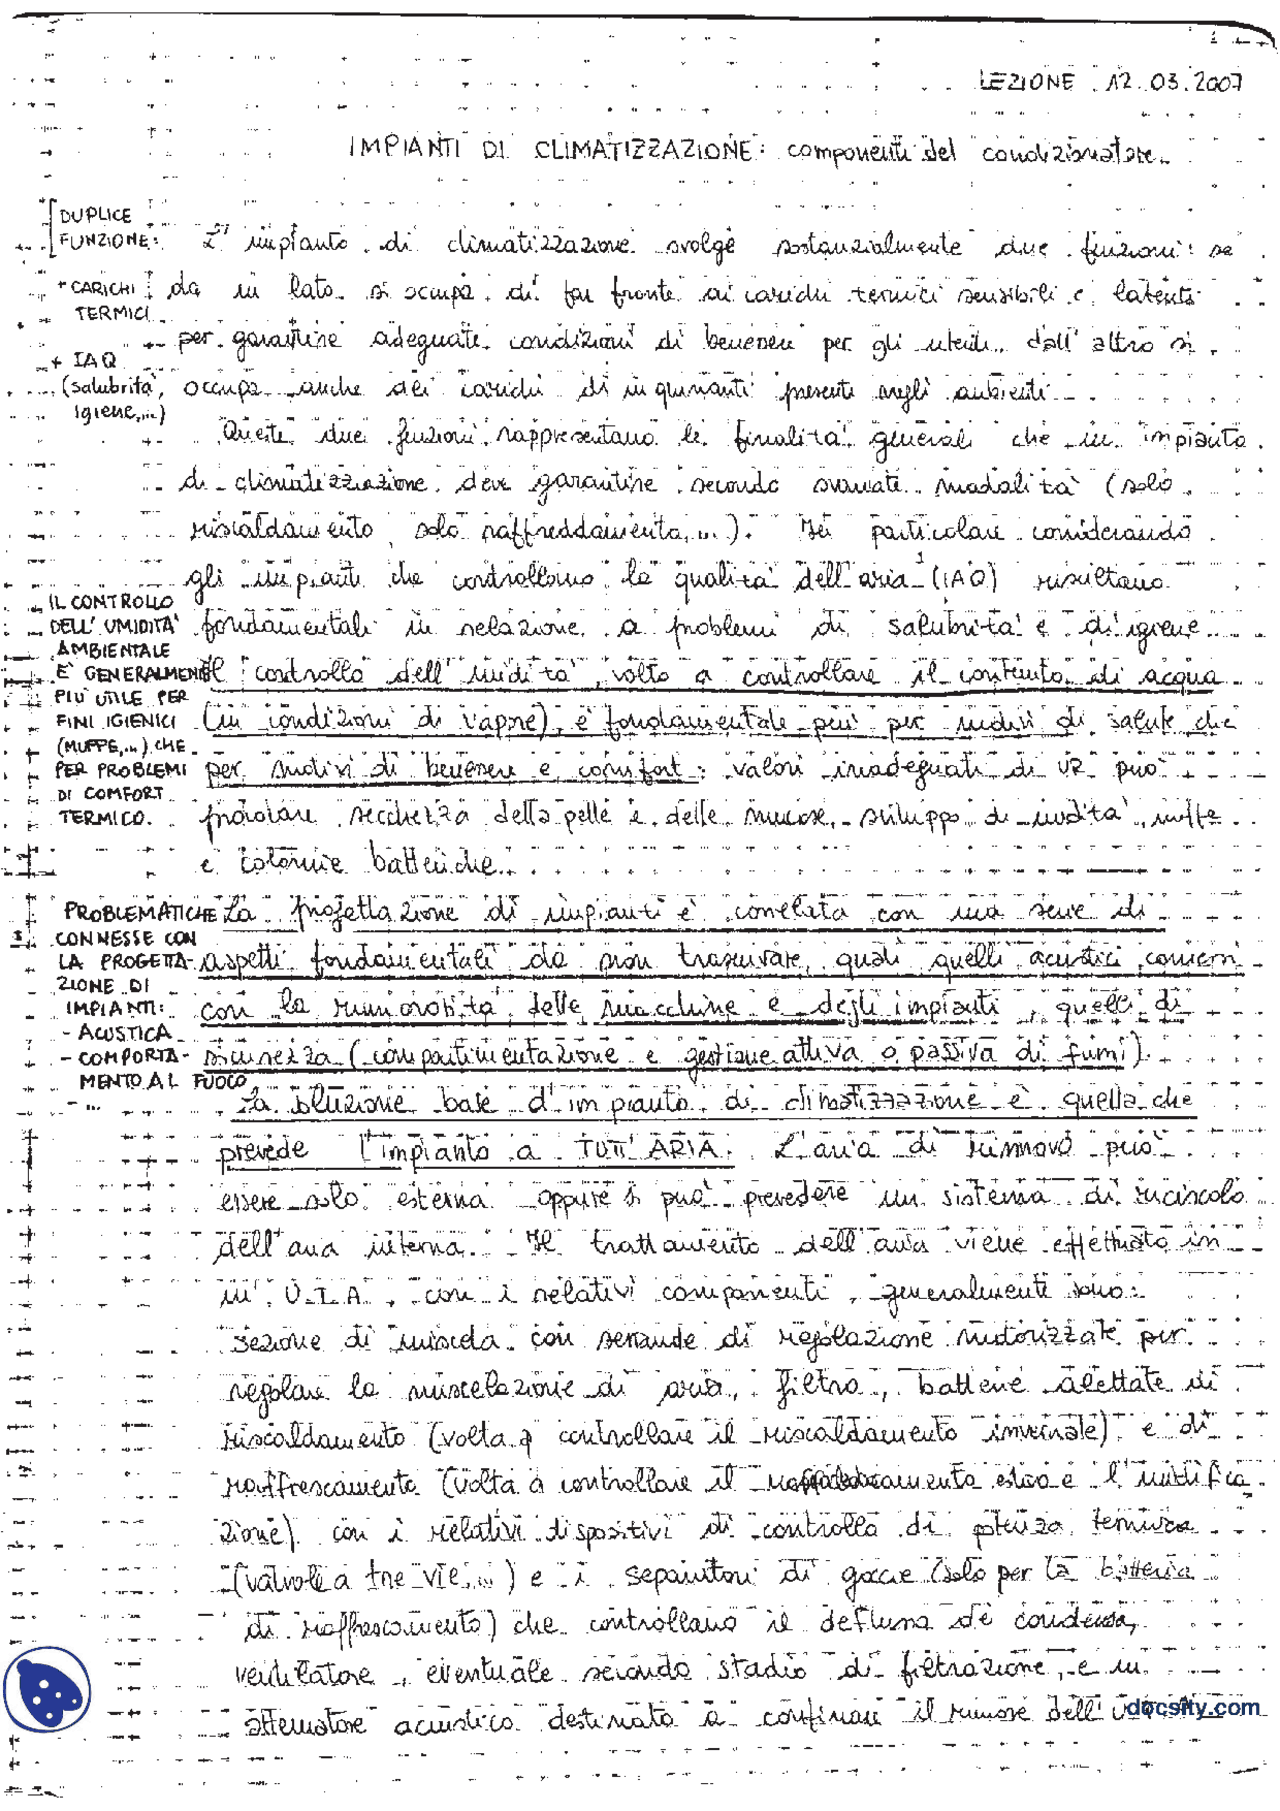 LEZIONE 12.03.2007
IMPIANTI DI CLIMATIZZAZIONE: componenti del condizionatore.
DUPLICE
FUNZIONE:
+ CARICHI
TERMICI
+ IAQ
(salubrità,
igiene,...)
L'impianto di climatizzazione svolge sostanzialmente due funzioni: se
da un lato si occupa di far fronte ai carichi termici sensibili e latenti
per garantire adeguate condizioni di benessere per gli utenti, dall'altro si
occupa anche dei carichi di inquinanti presenti negli ambienti.
Queste due funzioni rappresentano le finalità generali che un impianto
di climatizzazione deve garantire secondo svariate modalità (solo
riscaldamento, solo raffreddamento,...). In particolare considerando
gli impianti che controllano la qualità dell'aria (IAQ) risultano
fondamentali in relazione a problemi di salubrità e di igiene.
IL CONTROLLO
DELL'UMIDITA'
AMBIENTALE
E' GENERALMENTE
PIU' UTILE PER
FINI IGIENICI
(MUFFE,...) CHE
PER PROBLEMI
DI COMFORT
TERMICO.
Il controllo dell'umidità, volto a controllare il contenuto di acqua
(in condizioni di vapore), è fondamentale più per motivi di salute che
per motivi di benessere e comfort: valori inadeguati di UR può
provocare secchezza della pelle e delle mucose, sviluppo di umidità, muffe
e colonie batteriche.
PROBLEMATICHE
CONNESSE CON
LA PROGETTA-
ZIONE DI
IMPIANTI:
- ACUSTICA
- COMPORTA-
MENTO AL FUOCO
- ...
La progettazione di impianti è correlata con una serie di
aspetti fondamentali da non trascurare, quali quelli acustici, connessi
con la rumorosità delle macchine e degli impianti, quelli di
sicurezza (compartimentazione e gestione attiva o passiva di fumi).
La soluzione base d'impianto di climatizzazione è quella che
prevede l'impianto a TUTT'ARIA. L'aria di rinnovo può
essere solo esterna oppure si può prevedere un sistema di ricircolo
dell'aria interna. Il trattamento dell'aria viene effettuato in
un' U.T.A., con i relativi componenti, generalmente sono:
sezione di miscela con serrande di regolazione motorizzate per
regolare la miscelazione di aria, filtro, batterie alettate di
riscaldamento (volta a controllare il riscaldamento invernale) e di
raffrescamento (volta a controllare il raffrescamento estivo e l'umidifica
zione) con i relativi dispositivi di controllo di potenza termica
(valvole a tre vie,...) e i separatori di gocce (solo per la batteria
di raffrescamento) che controllano il defluna de condensa,
ventilatore, eventuale secondo stadio di filtrazione, e un
attenuatore acustico destinato a confinare il rumore dell'
docsity.com